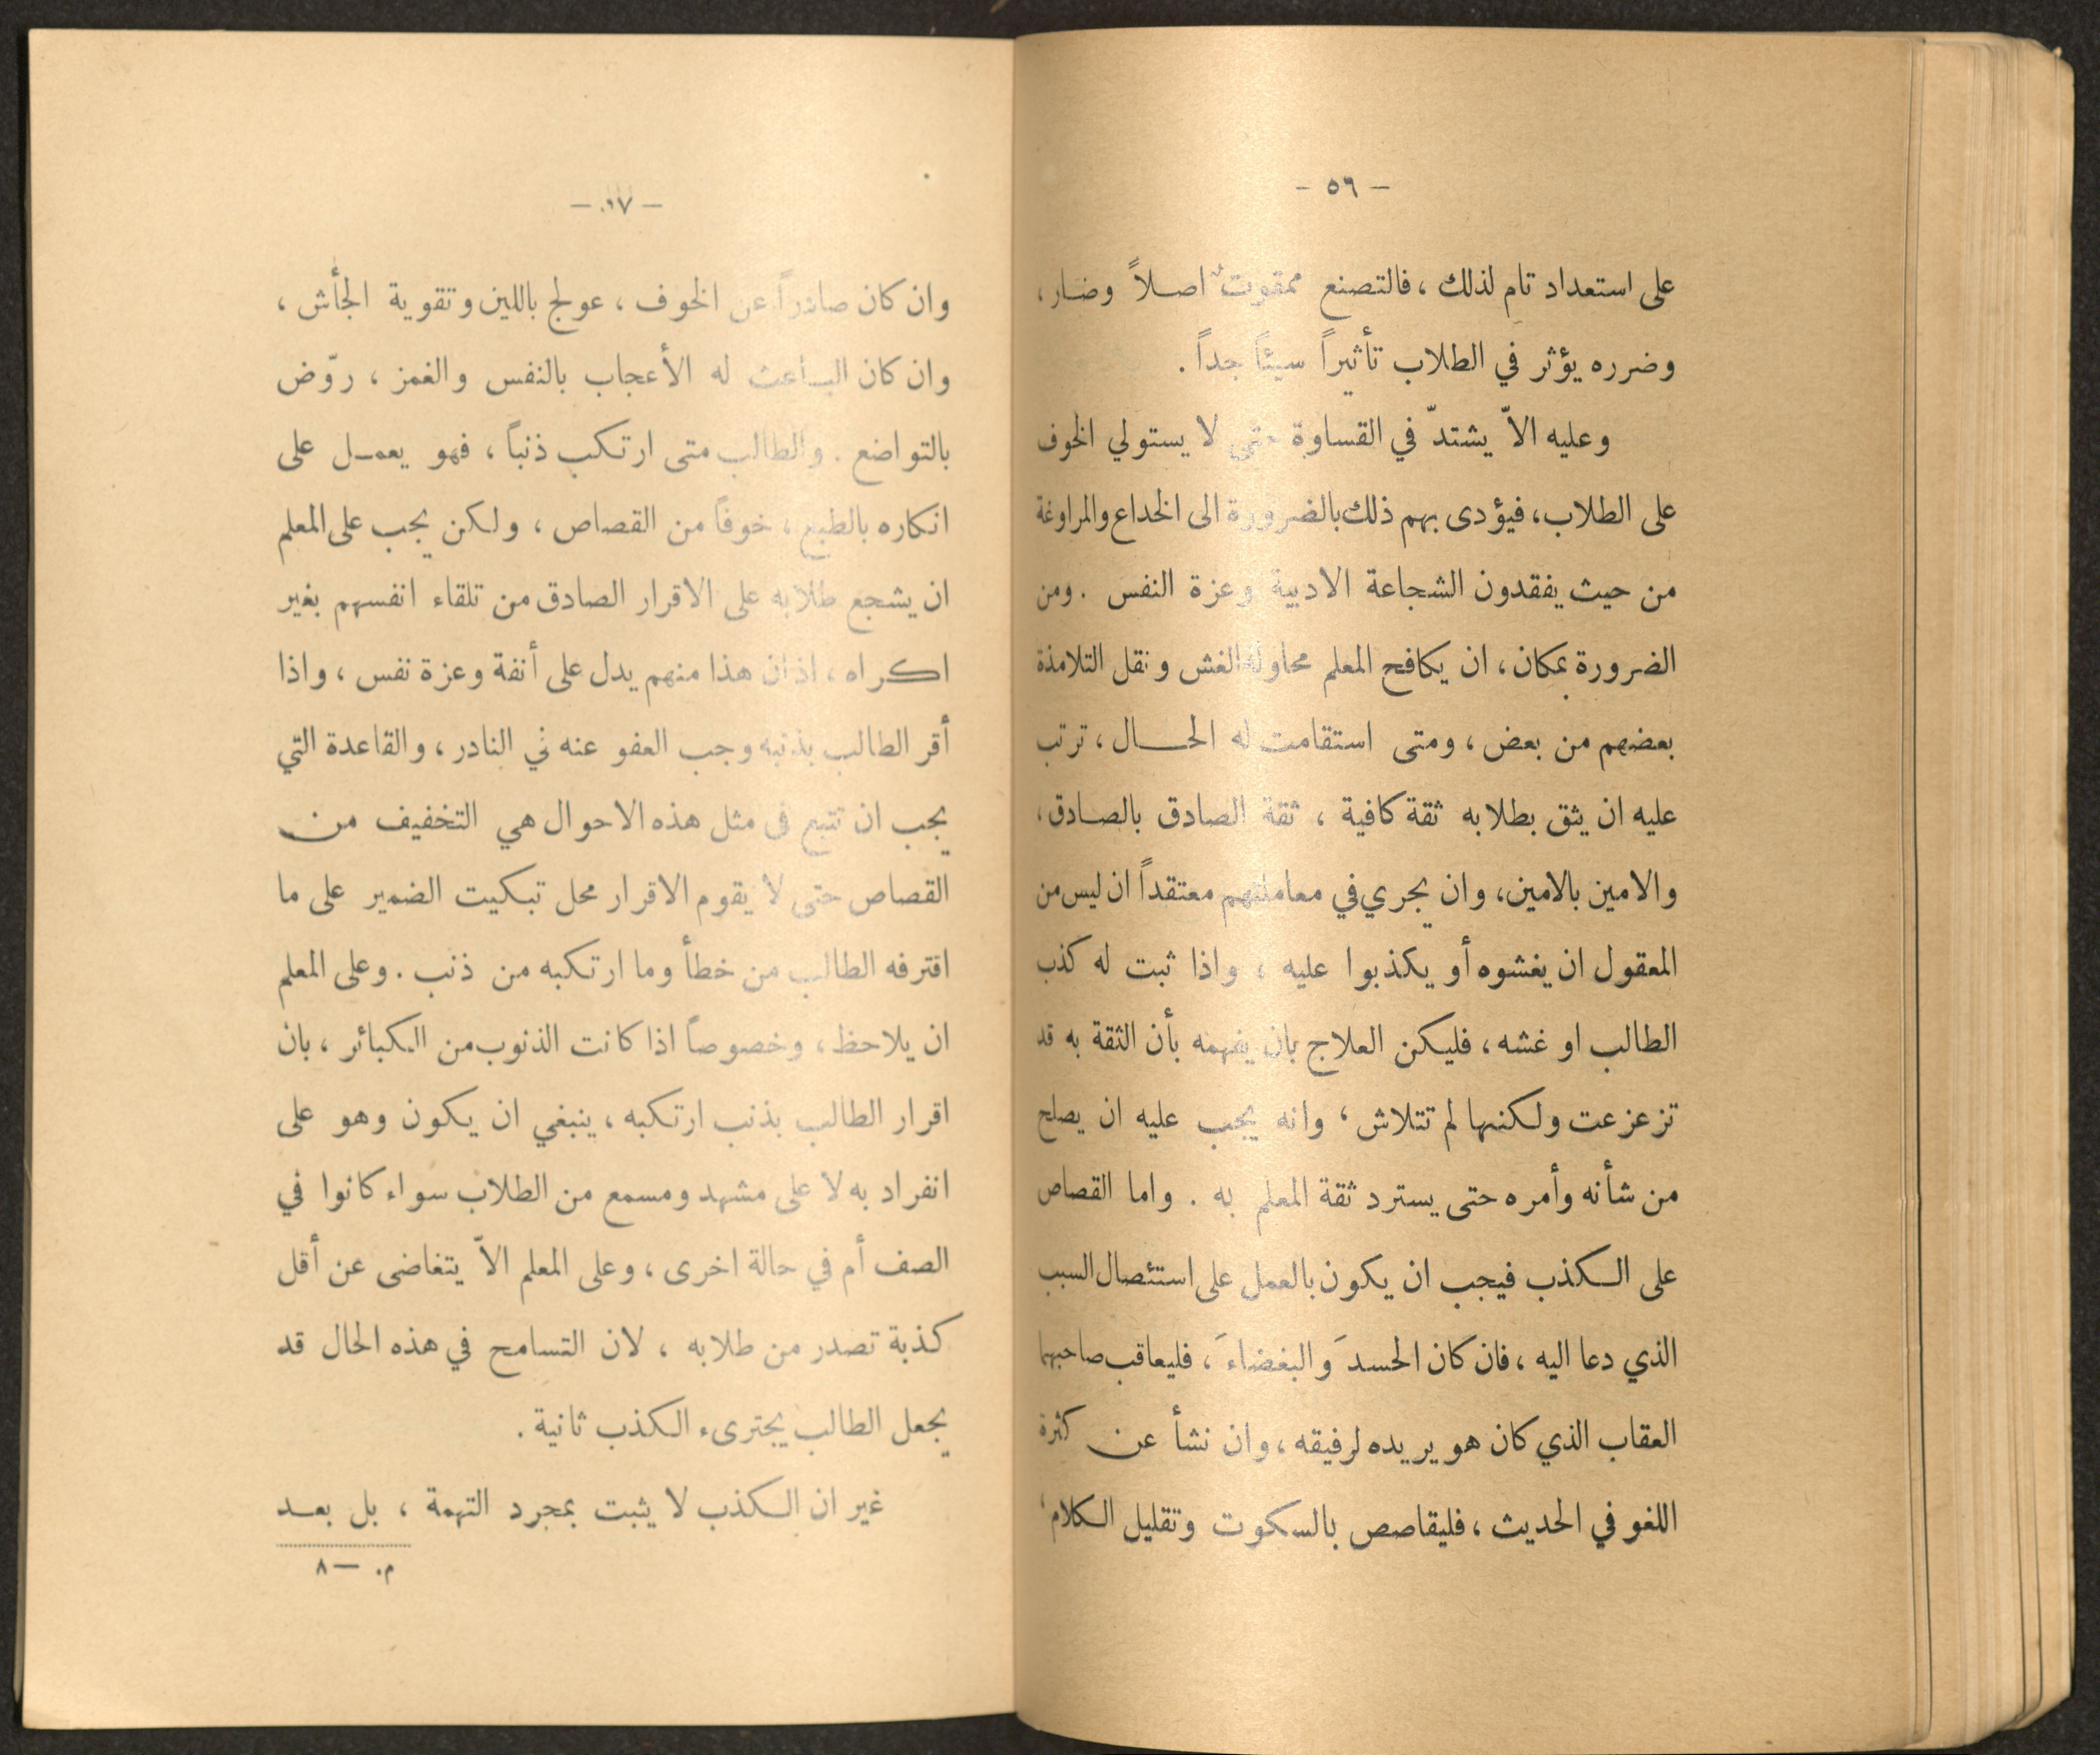 — ٥٦ —
على استعداد تام لذلك ، فالتصنع ممقوتٌ اصلاً وضار ،
وضرره يؤثر في الطلاب تأثيراً سيئاً جداً .
وعليه الاّ يشتدّ في القساوة حتى لا يستولي الخوف
على الطلاب، فيؤدى بهم ذلك بالضرورة الى الخداع والمراوغة
من حيث يفقدون الشجاعة الادبية وعزة النفس . ومن
الضرورة بمكان ، ان يكافح المعلم محاولة الغش ونقل التلامذة
بعضهم من بعض ، ومتى استقامت له الحال ، ترتب
عليه ان يثق بطلابه ثقة كافية ، ثقة الصادق بالصادق ،
والامين بالامين، وان يجري في معاملتهم معتقداً ان ليس من
المعقول ان يغشوه أو يكذبوا عليه ، واذا ثبت له كذب
الطالب او غشه ، فليكن العلاج بان يفهمه بأن الثقة به قد
تزعزعت ولكنها لم تتلاش ، وانه يجب عليه ان يصلح
من شأنه وأمره حتى يسترد ثقة المعلم به . واما القصاص
على الكذب فيجب ان يكون بالعمل على استئصال السبب
الذي دعا اليه ، فان كان الحسدَ والبغضاءَ ، فليعاقب صاحبهما
العقاب الذي كان هو يريده لرفيقه ، وان نشأ عن كثرة
اللغو في الحديث ، فليقاصص بالسكوت وتقليل الكلام ،
وان كان صادراً عن الخوف ، عولج باللين وتقوية الجأش ،
وان كان الباعث له الأعجاب بالنفس والغمز ، روّض
بالتواضع . والطالب متى ارتكب ذنباً ، فهو يعمل على
انكاره بالطبع ، خوفاً من القصاص ، ولكن يجب على المعلم
ان يشجع طلابه على الاقرار الصادق من تلقاء انفسهم بغير
اكراه ، اذ ان هذا منهم يدل على أنفة وعزة نفس ، واذا
أقر الطالب بذنبه وجب العفو عنه في النادر ، والقاعدة التي
يجب ان تتبع في مثل هذه الاحوال هي التخفيف من
القصاص حتى لا يقوم الاقرار محل تبكيت الضمير على ما
اقترفه الطالب من خطأ وما ارتكبه من ذنب . وعلى المعلم
ان يلاحظ ، وخصوصاً اذا كانت الذنوب من الكبائر ، بان
اقرار الطالب بذنب ارتكبه ، ينبغي ان يكون وهو على
انفراد به لا على مشهد ومسمع من الطلاب سواء كانوا في
الصف أم في حالة اخرى ، وعلى المعلم الاّ يتغاضى عن أقل
كذبة تصدر من طلابه ، لان التسامح في هذه الحال قد
يجعل الطالب يجترىء الكذب ثانية .
غير ان الكذب لا يثبت بمجرد التهمة ، بل بعد
م. — ٨